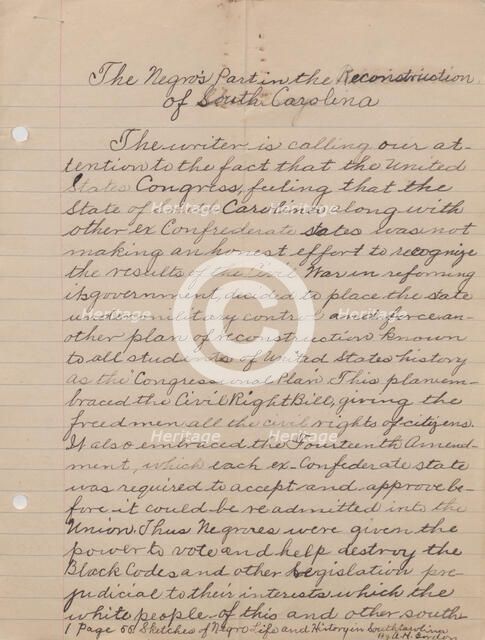 The Negro's Part in the Reconstruction
of South Carolina
The writer is calling our at-
tention to the fact that the United
States Congress, feeling that the
State of South Carolina along with
other ex Confrederate states was not
making an honest effort to recognize
the results of the Civil War in reforming
its government, decided to place the state
under military control and force an-
other plan of reconstruction known
to all students of United States history
as the Congressional Plan. This plan em-
braced the Civil Right Bill, giving the
freedmen all the civil rights of citizens.
It also embraced the Fourteenth Amend-
ment, which each ex-Confederate state
was required to accept and approve be-
fore it could be readmitted into the
Union. Thus Negroes were given the
power to vote and help destroy the
Black Codes and other legislation pre-
judicial to their interests which the
white people of this and other south
1 Page 55 Sketches of Negro Life and History in South Carolina
By A.H. Gordon
Heritage
Heritage
Heritage
Heritage
Heritage
Heritage